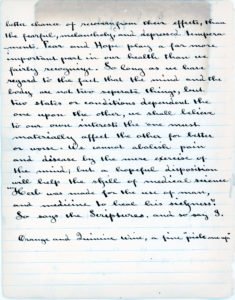 better chance of recovery from their effects, than
the fearful, melancholy and depressed tempera-
ment. Fear and Hope play a far more
important part in our health than we
fairly recognize. So long as we have
regard to the fact that the mind and the
body are not two separate things, but
two states or conditions dependent the
one upon the other, we shall believe
to our own interest the one must
materially affect the other for better
or worse. We cannot abolish pain
and disease by the mere exercise of
the mind, but a hopeful disposition
will help the skill of medical science.
"Herb was made for the use of man,
and medicine to heal his sickness".
So says the Scriptures, and so say I.
Orange and Quinine Wine, a fine "pick-me-up"